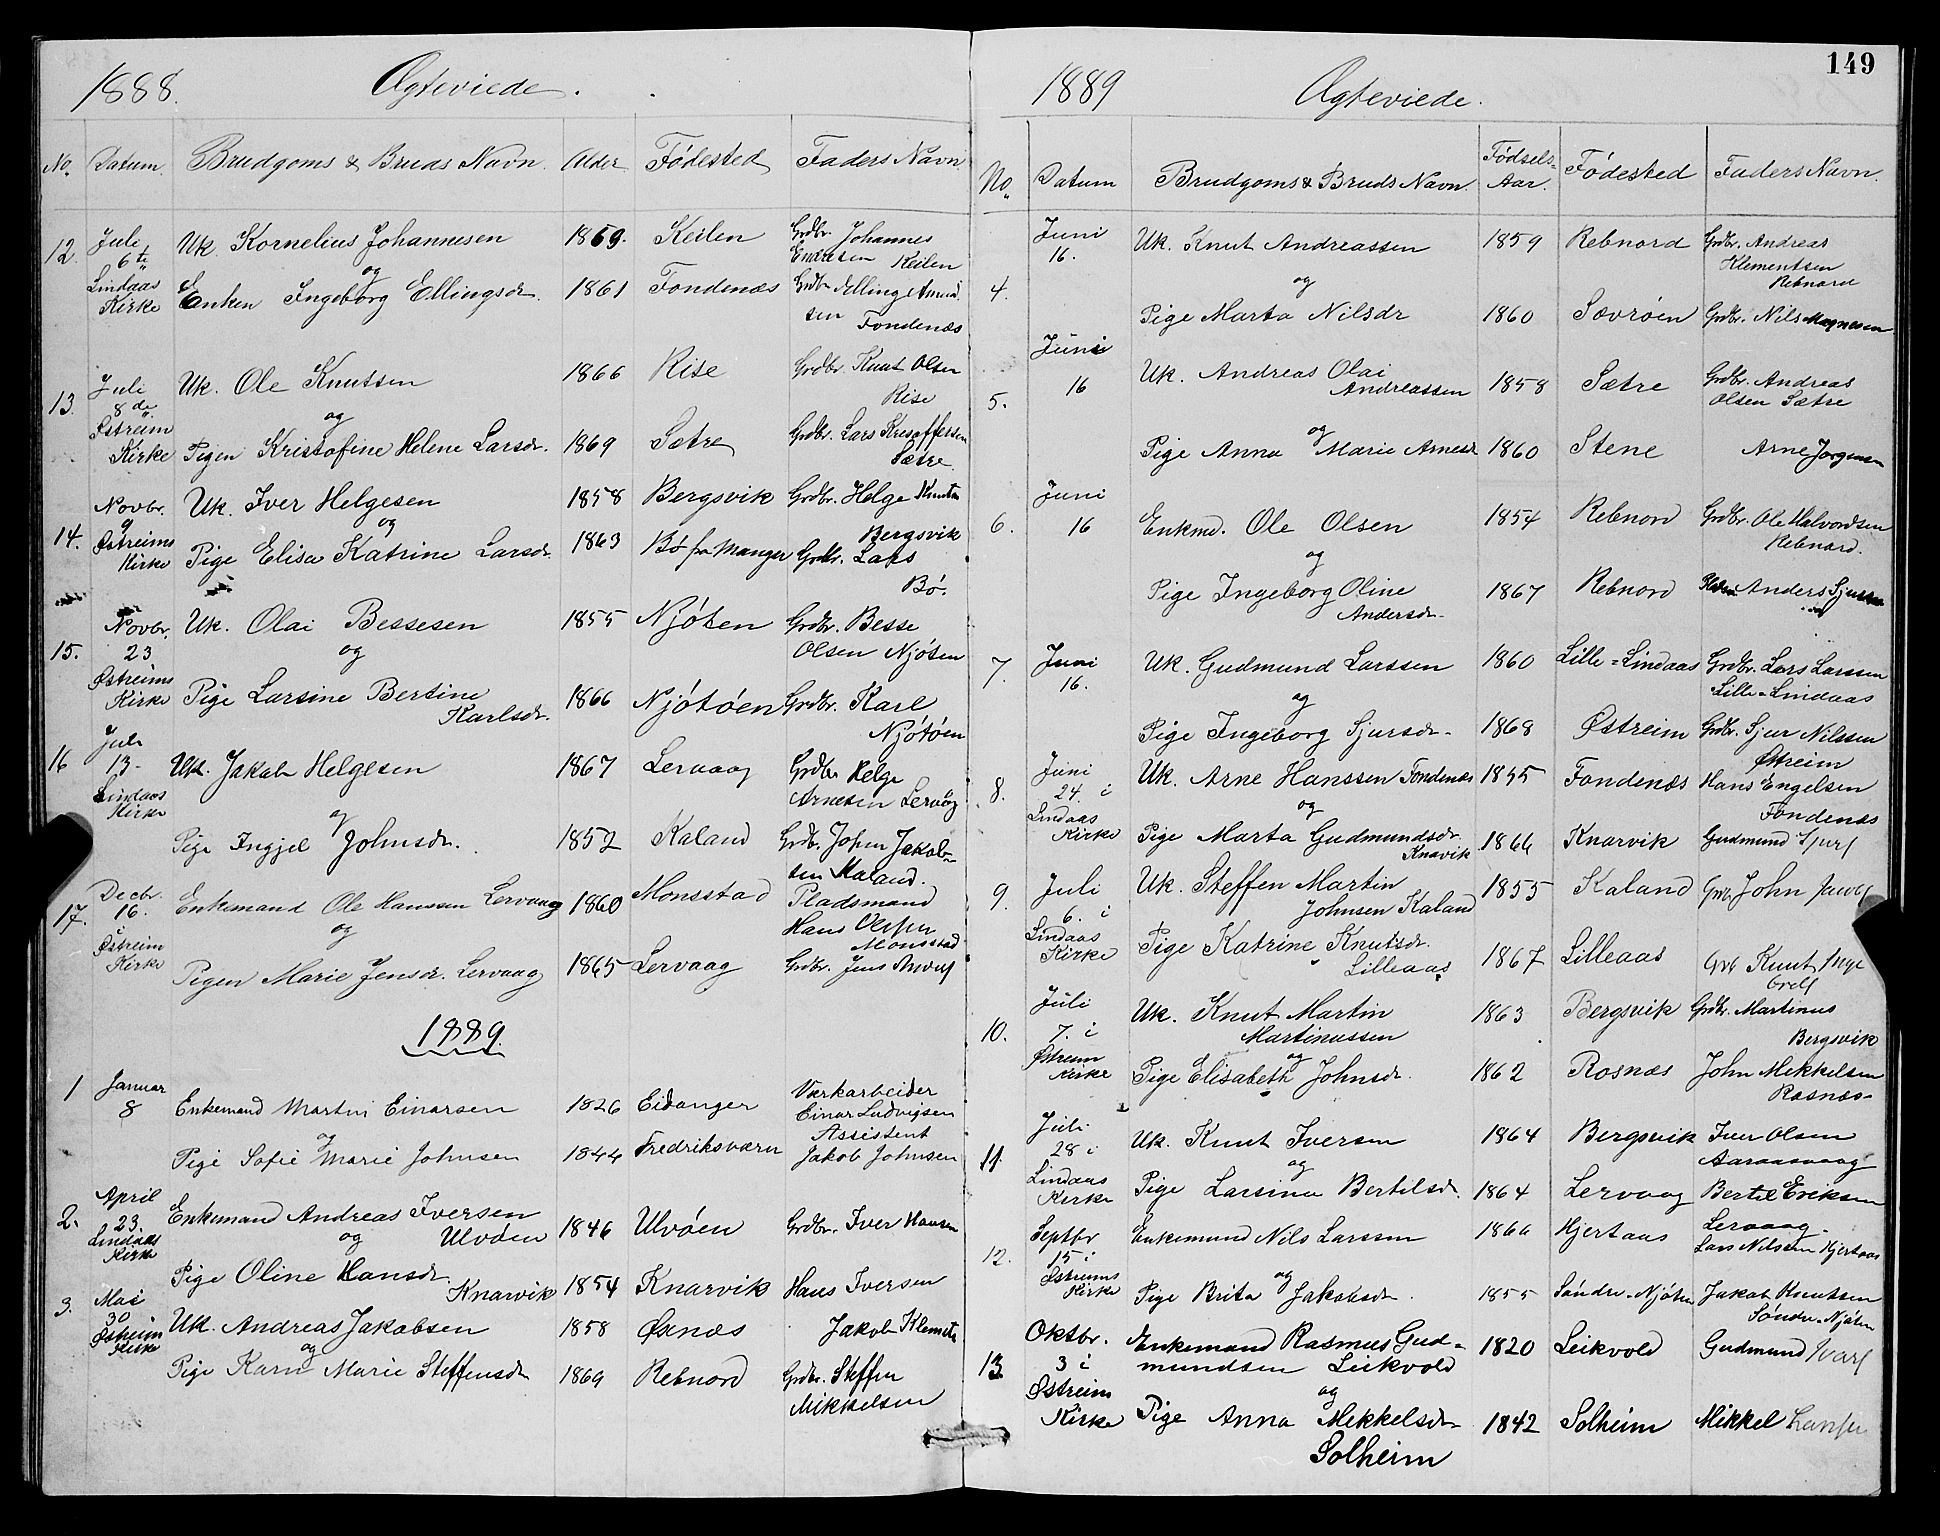 1888. Ægteviede.
No. Datum. Brudgoms & Bruds Navn. Alder Fødested Faders Navn.
12. Juli 6te Uk. Kornelius Johannesen 1859. Keilen Grdbr. Johannes
Endresen Keilen
og
Lindaas Kirke Enken Ingeborg Ellingsdr. 1861 Fondenæs Grdbr Elling
sen Fondenæs
13. Juli 8de Uk. Ole Knutsen 1866 Rise Grdbr. Knut Olsen
Rise
og
Østreim Kirke Pigen Kristofine Helene Larsdr. 1869 Sætre Grdbr. Lars
Sætre
14. Novbr. 9 Uk. Iver Helgesen 1858 Bergsvik Grdbr. Helge Knuts
Bergsvik
og
Østreims Kirke Pige Elisa Katrine Larsdr. 1863 Bø fr Manger Grdbr. Lars
Bø.
15. Novbr. 23 Uk. Olai Bessesen 1855 Njøten Grdbr. Besse
Olsen Njøten
og
Østreims Kirke Pige Larsine Bertine 1866 Njøtøen Grdbr. Karl
Karlsdr. Njøtøen
16 Juli 13 Uk. Jakob Helgesen 1867 Lervaag Grdbr Helge
Arnesen Lervåg
Lindaas Kirke
og
Pige Ingjel Johnsdr. 1852 Kaland Grdb. John Jakob-
sen Kaland.
17. Decbr. 16. Enkemand Ole Hanssen Lervaag 1860 Monsstad Pladsmand
Hans
Monsstad
i Østreim Kirke
og
Pigen Marie Jensdr. Lervaag 1865 Lervaag Grdbr. Jens
1889.
1 Januar 8 Enkemand Martin Einarsen 1826 Eidanger Værkarbeider
Einar Ludvigsen
og
Assistent
Pige Sofie Marie Johnsen 1844 Fredriksværn Jakob Johnsen
2. April 23. Enkemand Andreas Iversen
Lindaas Kirke og Ulvøen 1846 Ulvøen Grdbr. Iver Hansen
Pige Oline Hansdr.
Knarvik 1854 Knarvik Hans Iversen
3. Mai 30 Uk. Andreas Jakobsen 1858 Øxnæs Jakob Klemets
Østreim Kirke
og
Pige Karn Marie Steffensdr 1869 Rebnord Grdbr. Steffen
Mikkelsen
149
1889 Ægteviede.
No. Datum Brudgoms & Bruds Navn. Fødsels-
Aar. Fødested Faders Navn.
4. Juni 16. Uk. Knut Andreassen 1859 Rebnord Grdbr. Andreas
Klementsen
Rebnord
og
Pige Marta Nilsdr 1860 Sævrøen Grdbr. Nils Magnesen
5. Juni 16 Uk. Andreas Olai
Andreassen 1858 Sætre Grdbr. Andreas
Olsen Sætre
og
Pige Anna Marie Arnesdr 1860 Stene Arne Jørgensen
6. Juni 16 Enkmd. Ole Olsen 1854 Rebnord Grdbr. Ole Halvordsen
Rebnord.
og
Pige Ingeborg Oline
Andersdr. 1867 Rebnord Anders
7. Juni 16. Uk. Gudmund Larssen 1860 Lille-Lindaas Grdbr. Lars Larssen
Lille-Lindaas
og
Pige Ingeborg Sjursdr. 1868 Østreim Grdbr. Sjur Nilssen
Østreim
8. Juni 24. i Uk. Arne Hanssen Fondenæs 1855 Fondenæs Hans Engelsen
Fondenæs
og
Lindaas Kirke Pige Marta Gudmundsdr.
Knavik 1866 Knarvik Gudmund
9. Juli 6. i Uk. Steffen Martin
Johnsen Kaland 1855 Kaland John
Lindaas Kirke Pige Katrine Knutsdr.
Lilleaas 1867 Lilleaas Knut
10. Juli 7. i Uk. Knut Martin
Martinussen 1863 Bergsvik Grdbr. Martinus
Bergsvik
og
Østreim Kirke Pige Elisabeth Johnsdr. 1862 Rosnæs John Mikkelsen
Rosnæs
11. Juli 28 i Uk. Knut Iversen 1864 Bergsvik Iver Olsen
Aaraasvaag
og
Lindaas Kirke Pige Larsina Bertilsdr. 1864 Lervaag Bertel Eriksen
Lervaag.
12. Septbr 15 i Enkemand Nils Larssen 1866 Hjertaas Lars Nilssen Hjertaas
og
Østreims Kirke Pige Brita Jakobsdr. 1855 Søndre-Njøten Jakob Knutsen
Søndre-Njøten
13. Oktbr. 3 i Enkemand Rasmus Gud-
mundsen Leikvold 1820 Leikvold Gudmund
og
Østreim Kirke Pige Anna Mekkelsdr
Solheim 1842 Solheim Mikkel